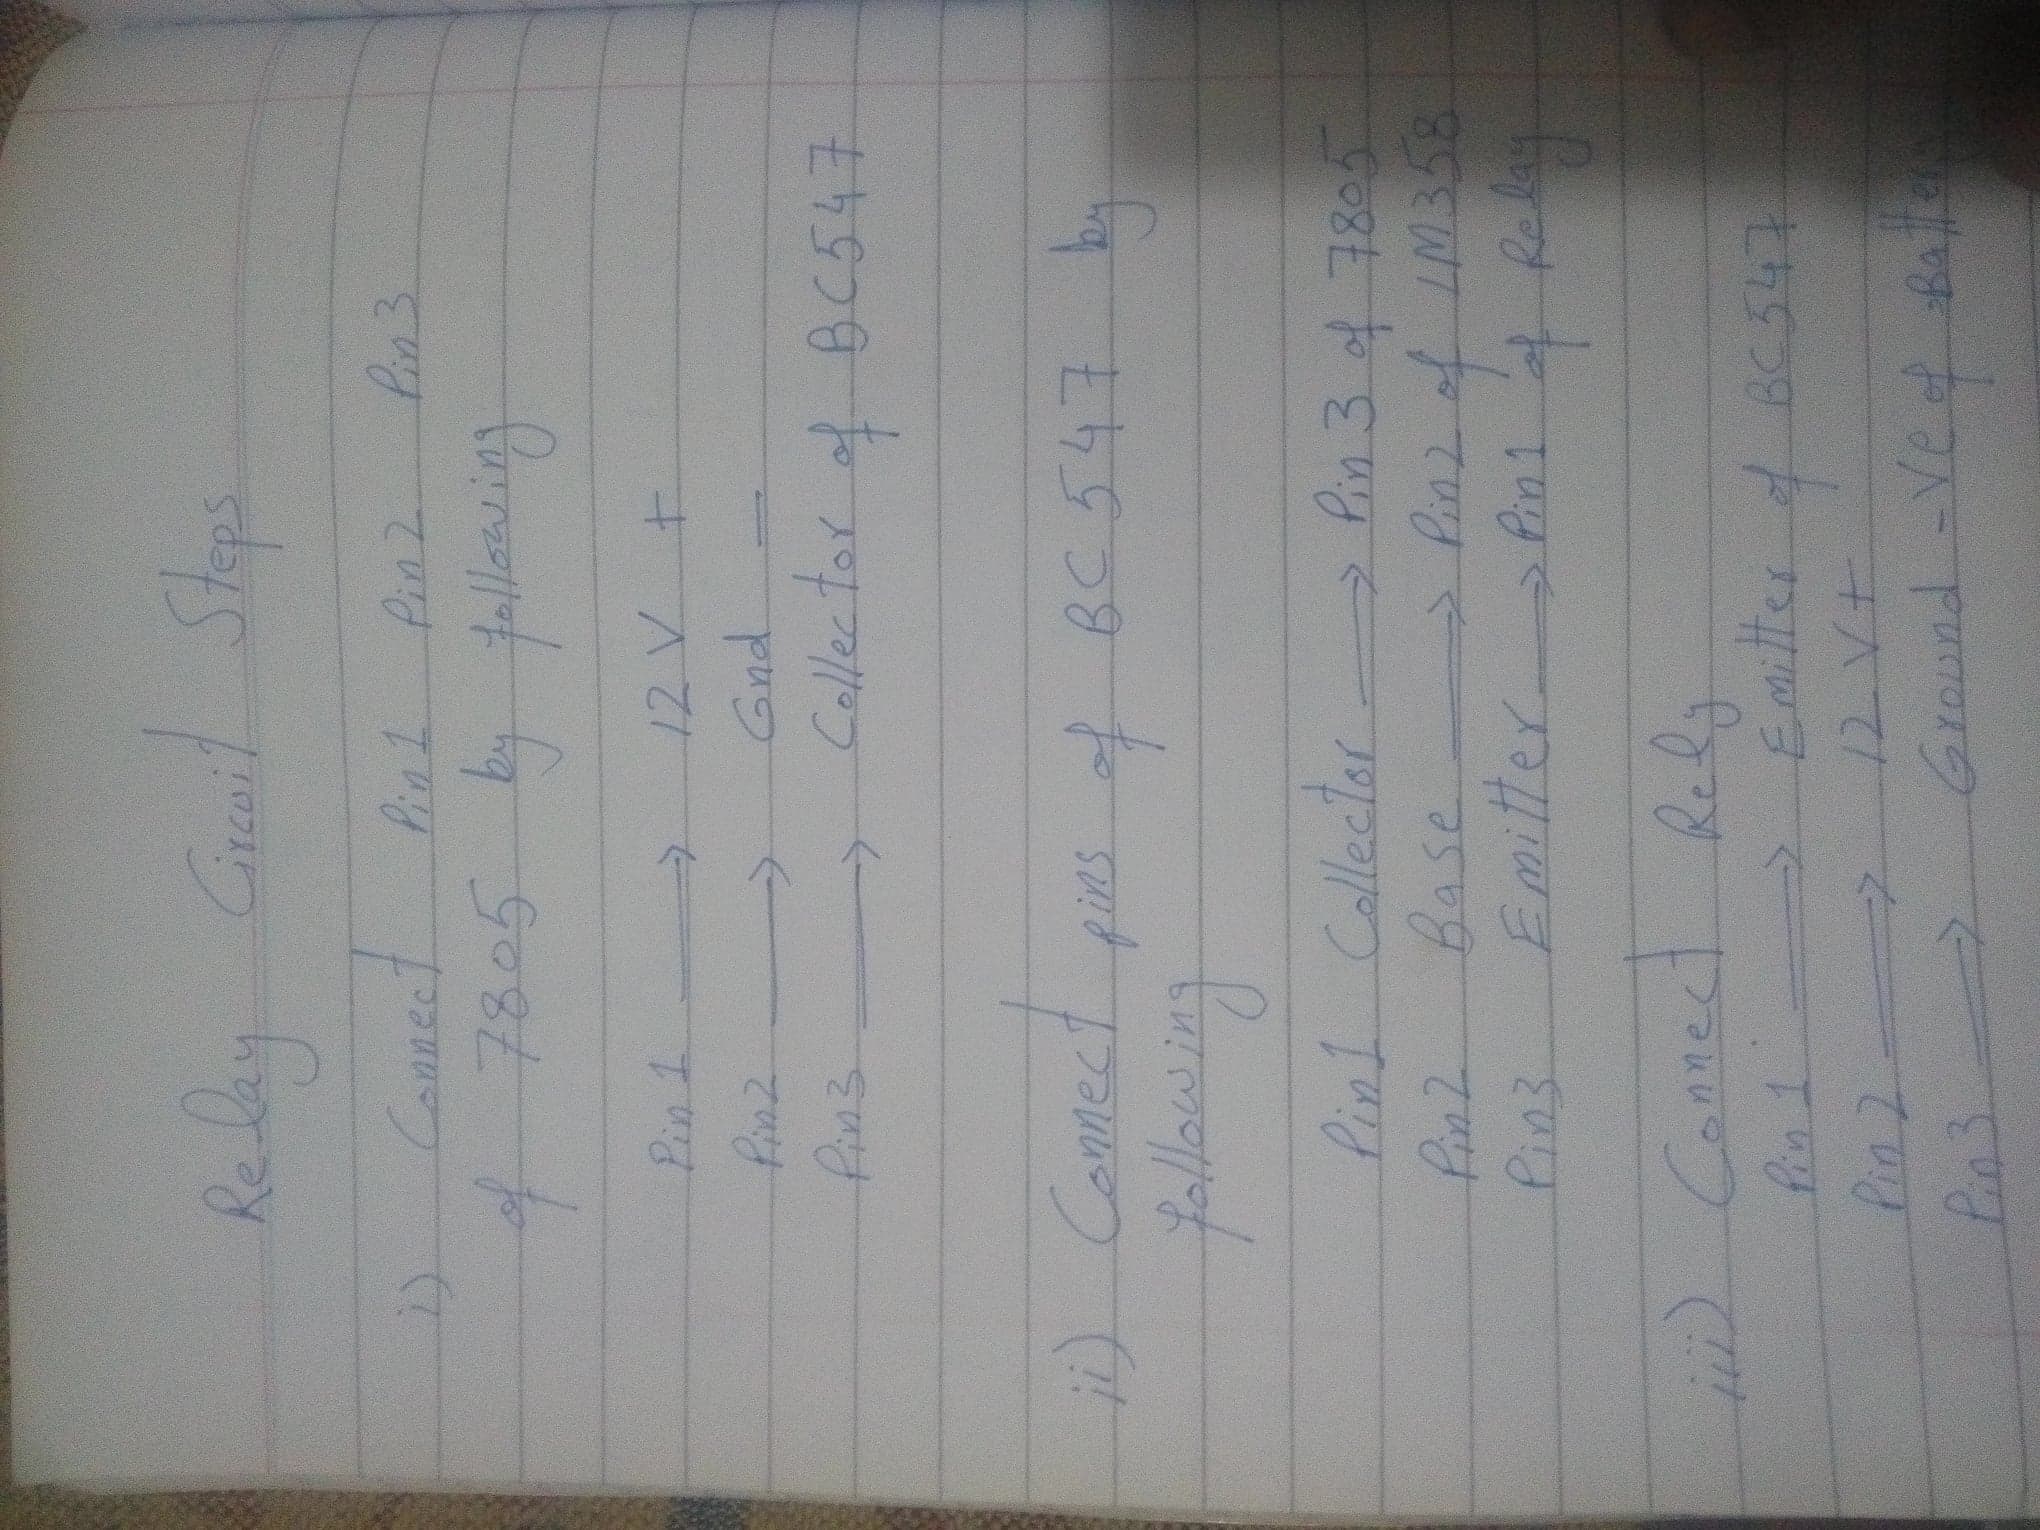 Relay Circuit Steps
i) Connect Pin1 Pin2 Pin3
of 7805 by following
Pin1 → 12V +
Pin2 → Gnd -
Pin3 → Collector of BC547
ii) Connect pins of BC547 by
following
Pin1 Collector → Pin3 of 7805
Pin2 Base → Pin2 of LM358
Pin3 Emitter → Pin1 of Relay
iii) Connect Rely
Pin1 → Emitter of BC547
Pin2 → 12V+
Pin3 → Ground -Ve of Battery